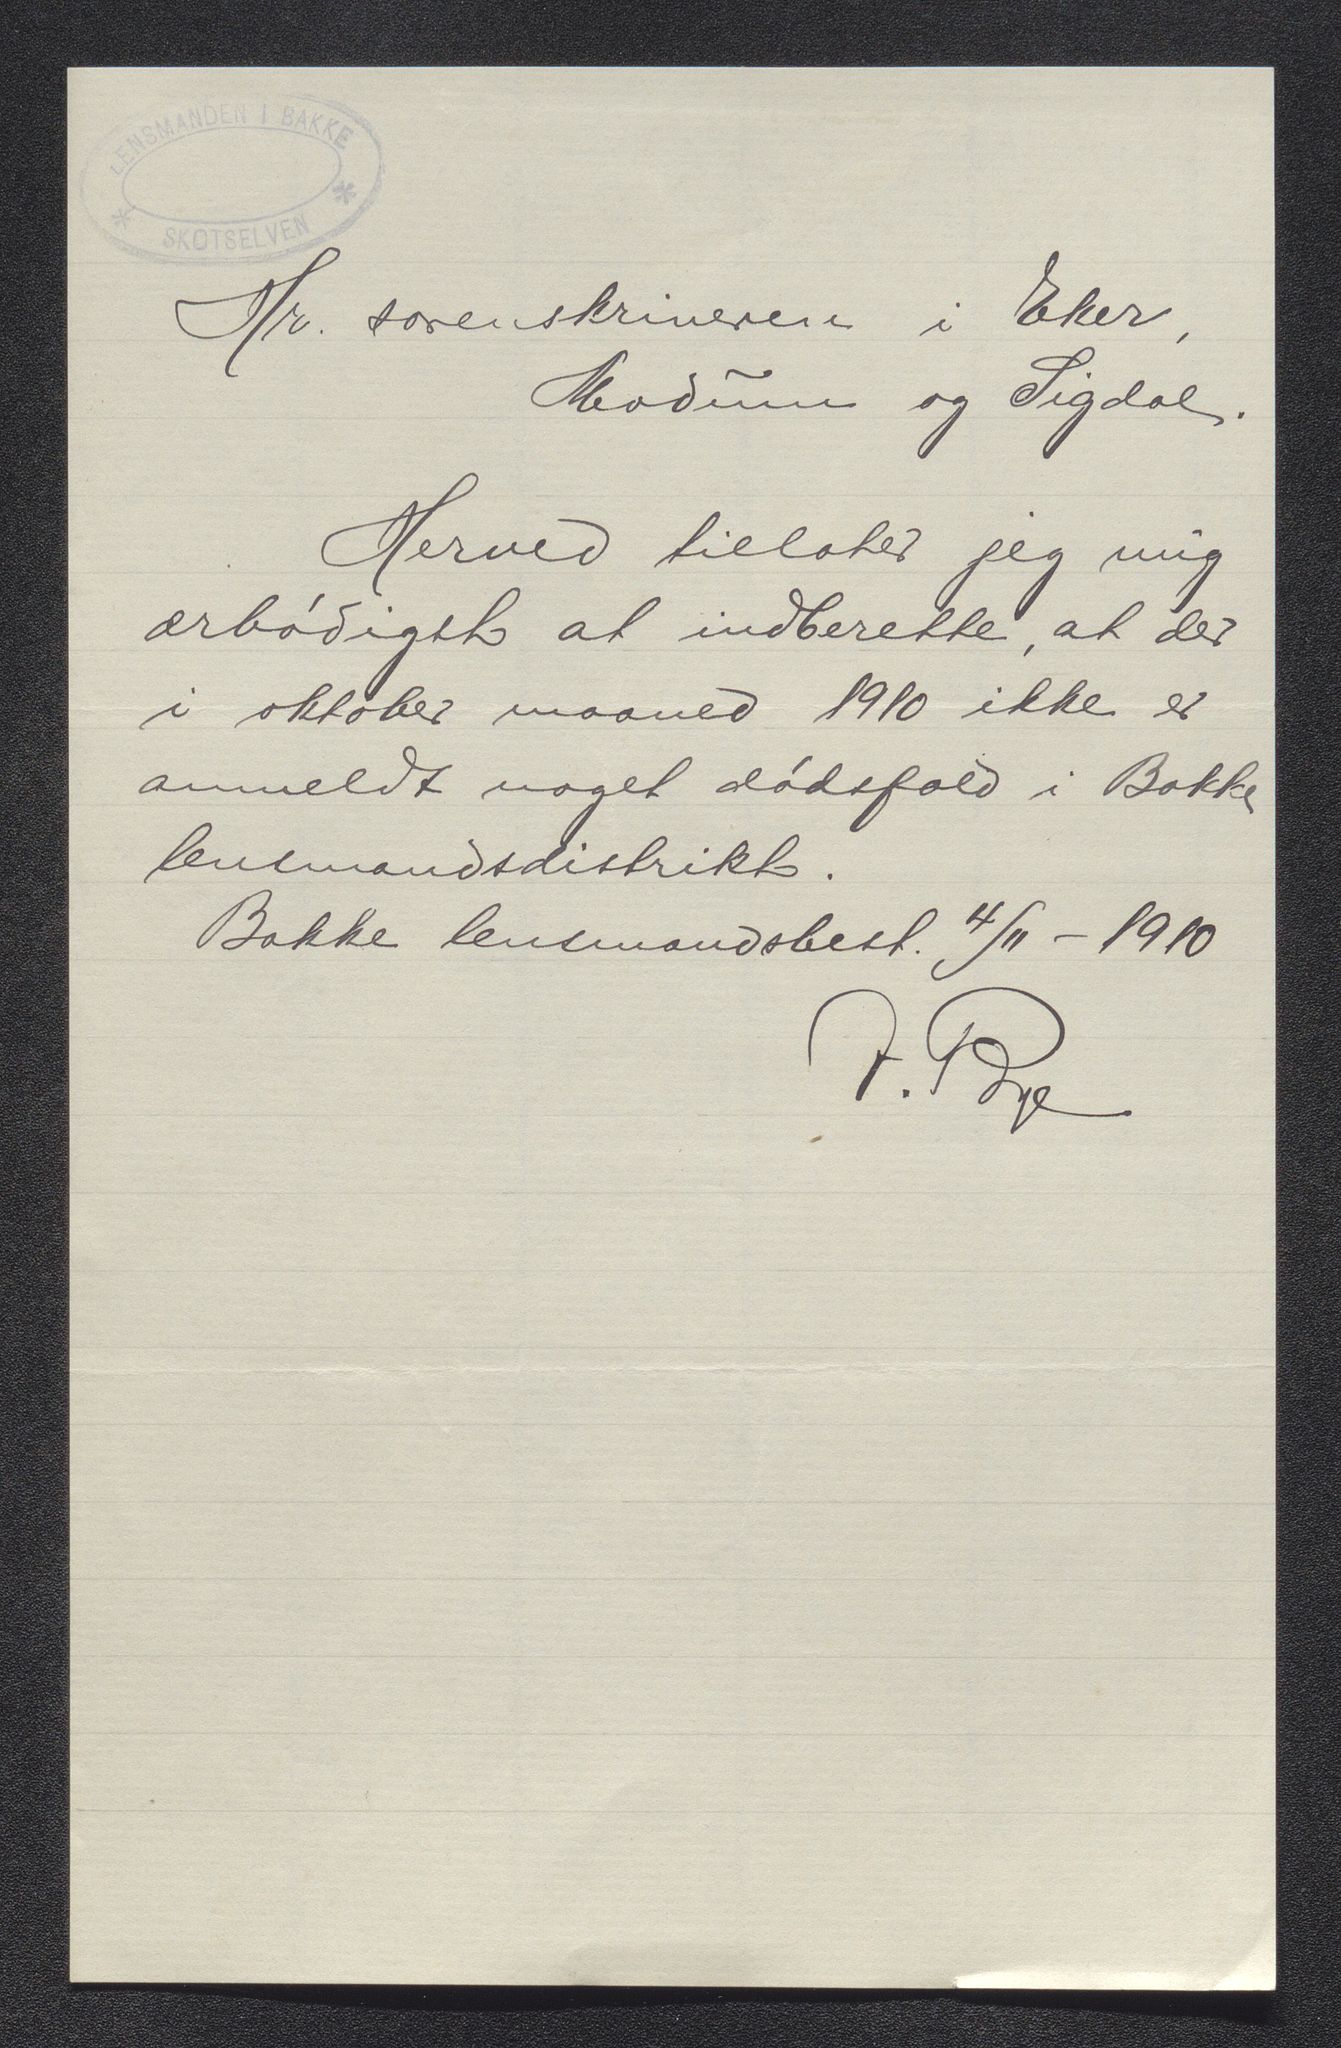 LENSMANDEN I BAKKE
* SKOTSELVEN *
Hr. sorenskriveren i Eker,
Modum og Sigdal.
Herved tillater jeg mig
ærbødigst at indberette, at der
i oktober maaned 1910 ikke er
anmeldt noget dødsfald i Bakke
lensmandsdistrikt.
Bakke lensmandsbest. 4/11 – 1910
J. Bye